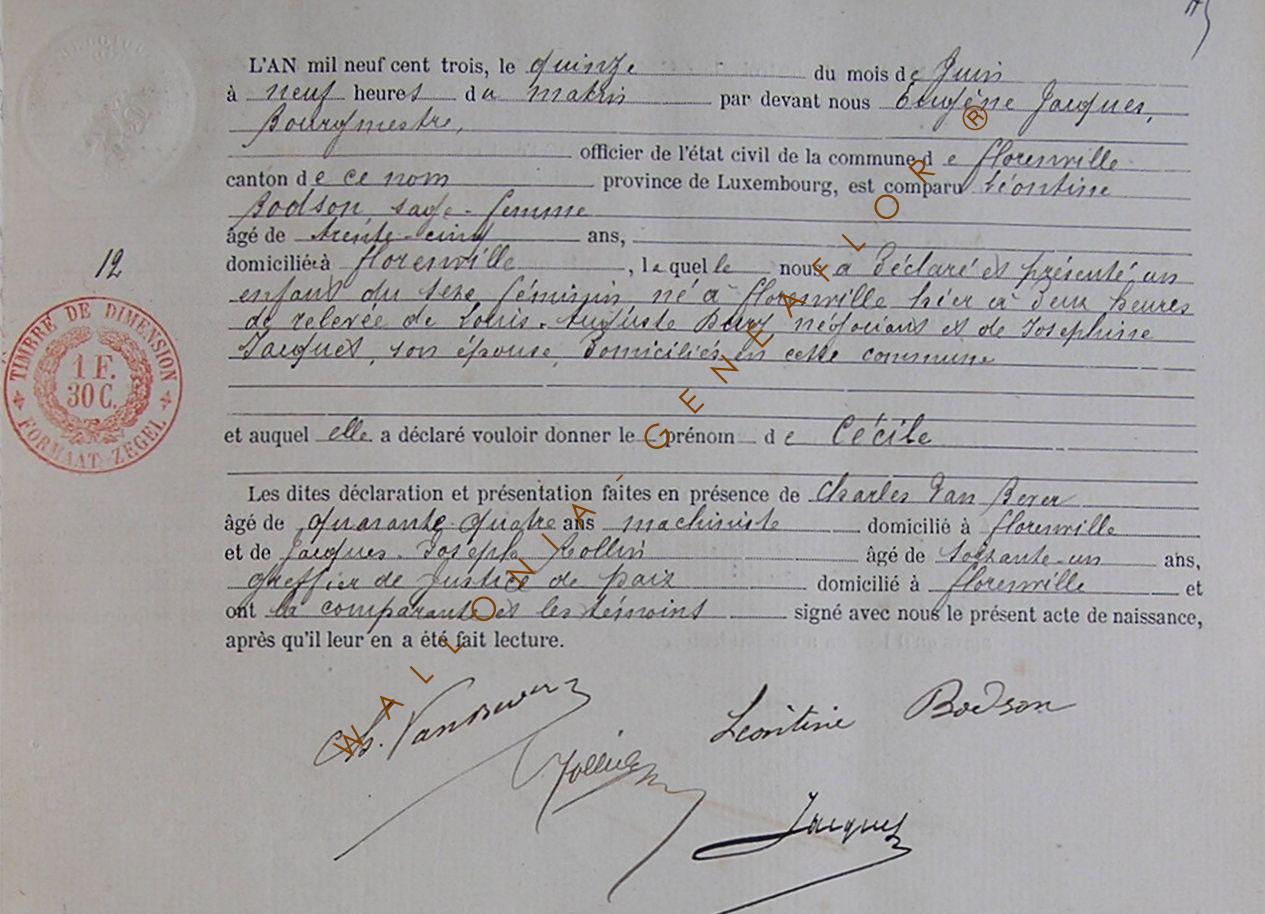 L'AN mil neuf cent trois, le quinze du mois de Juin
à neuf heures du matin par devant nous Eugène Jacques,
Bourgmestre,
officier de l'état civil de la commune de Florenville
canton de ce nom province de Luxembourg, est comparu Léontine
Bodson, sage-femme
âgé de trente-cinq ans,
domiciliée à Florenville, laquelle nous a déclaré et présenté un
enfant du sexe féminin né à Florenville hier à deux heures
de relevée de Louis-Auguste négociant et de Josephine
Jacques, son épouse, domiciliés en cette commune
12
TIMBRE DE DIMENSION
1 F.
30 C.
FORMAAT-ZEGEL
et auquel elle a déclaré vouloir donner le prénom de Cécile
Les dites déclaration et présentation faites en présence de Charles Van Bever
âgé de quarante-quatre ans machiniste domicilié à Florenville
et de Jacques-Joseph Rollin âgé de soixante-un ans,
greffier de Justice de paix domicilié à Florenville et
ont la comparante et les témoins signé avec nous le présent acte de naissance,
après qu'il leur en a été fait lecture.
Ch. Vanbever
Léontine Bodson
Jacques
WALLONIA - GENEAFLOR ®